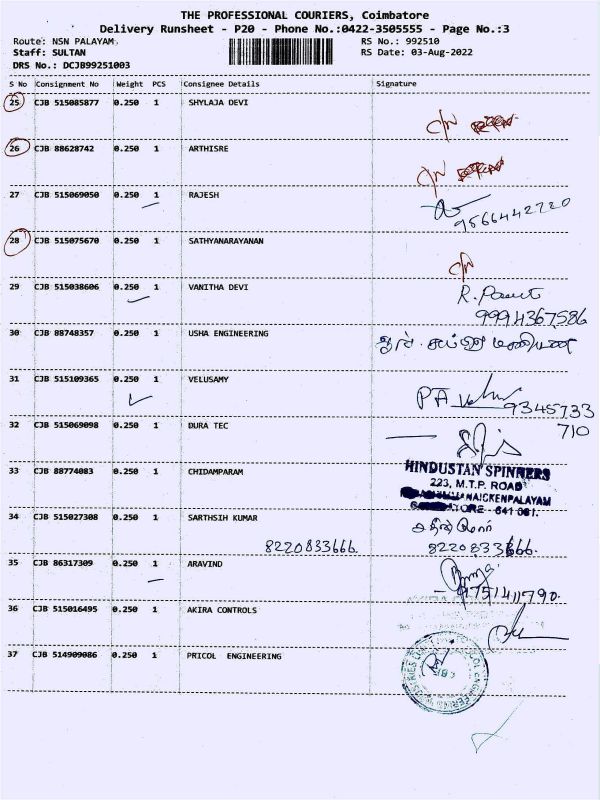 THE PROFESSIONAL COURIERS, Coimbatore
Delivery Runsheet - P20 - Phone No.:0422-3505555 - Page No.:3
Route: NSN PALAYAM RS No.: 992510
Staff: SULTAN RS Date: 03-Aug-2022
DRS No.: DCJB99251003
S No Consignment No Weight PCS Consignee Details Signature
25 CJB 515085877 0.250 1 SHYLAJA DEVI
26 CJB 88628742 0.250 1 ARTHISRE
27 CJB 515069050 0.250 1 RAJESH
9566442720
28 CJB 515075670 0.250 1 SATHYANARAYANAN
29 CJB 515038606 0.250 1 VANITHA DEVI
9994367586
30 CJB 88748357 0.250 1 USHA ENGINEERING
31 CJB 515109365 0.250 1 VELUSAMY
9345733
710
32 CJB 515069098 0.250 1 DURA TEC
33 CJB 88774083 0.250 1 CHIDAMPARAM
HINDUSTAN SPINNERS
223, M.T.P. ROAD
641 031.
34 CJB 515027308 0.250 1 SARTHSIH KUMAR
8220833666. 8220833666.
35 CJB 86317309 0.250 1 ARAVIND
9751411790.
36 CJB 515016495 0.250 1 AKIRA CONTROLS
37 CJB 514909086 0.250 1 PRICOL ENGINEERING